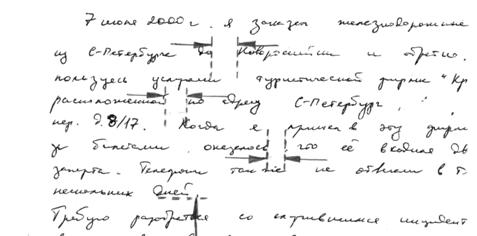 7 июля 2000 г. я заказал железнодорожные
из С-Петербурга до Новороссийска и обратно.
пользуясь услугами туристической фирмы "Кр
расположенной по адресу С-Петербург,
пер. д. 8/17. Когда я пришла в эту фирм
за билетами, оказалось, что её входная дв
заперта. Телефоны также не отвечали в т.
нескольких дней.
Требую разобраться со случившимся инцидент